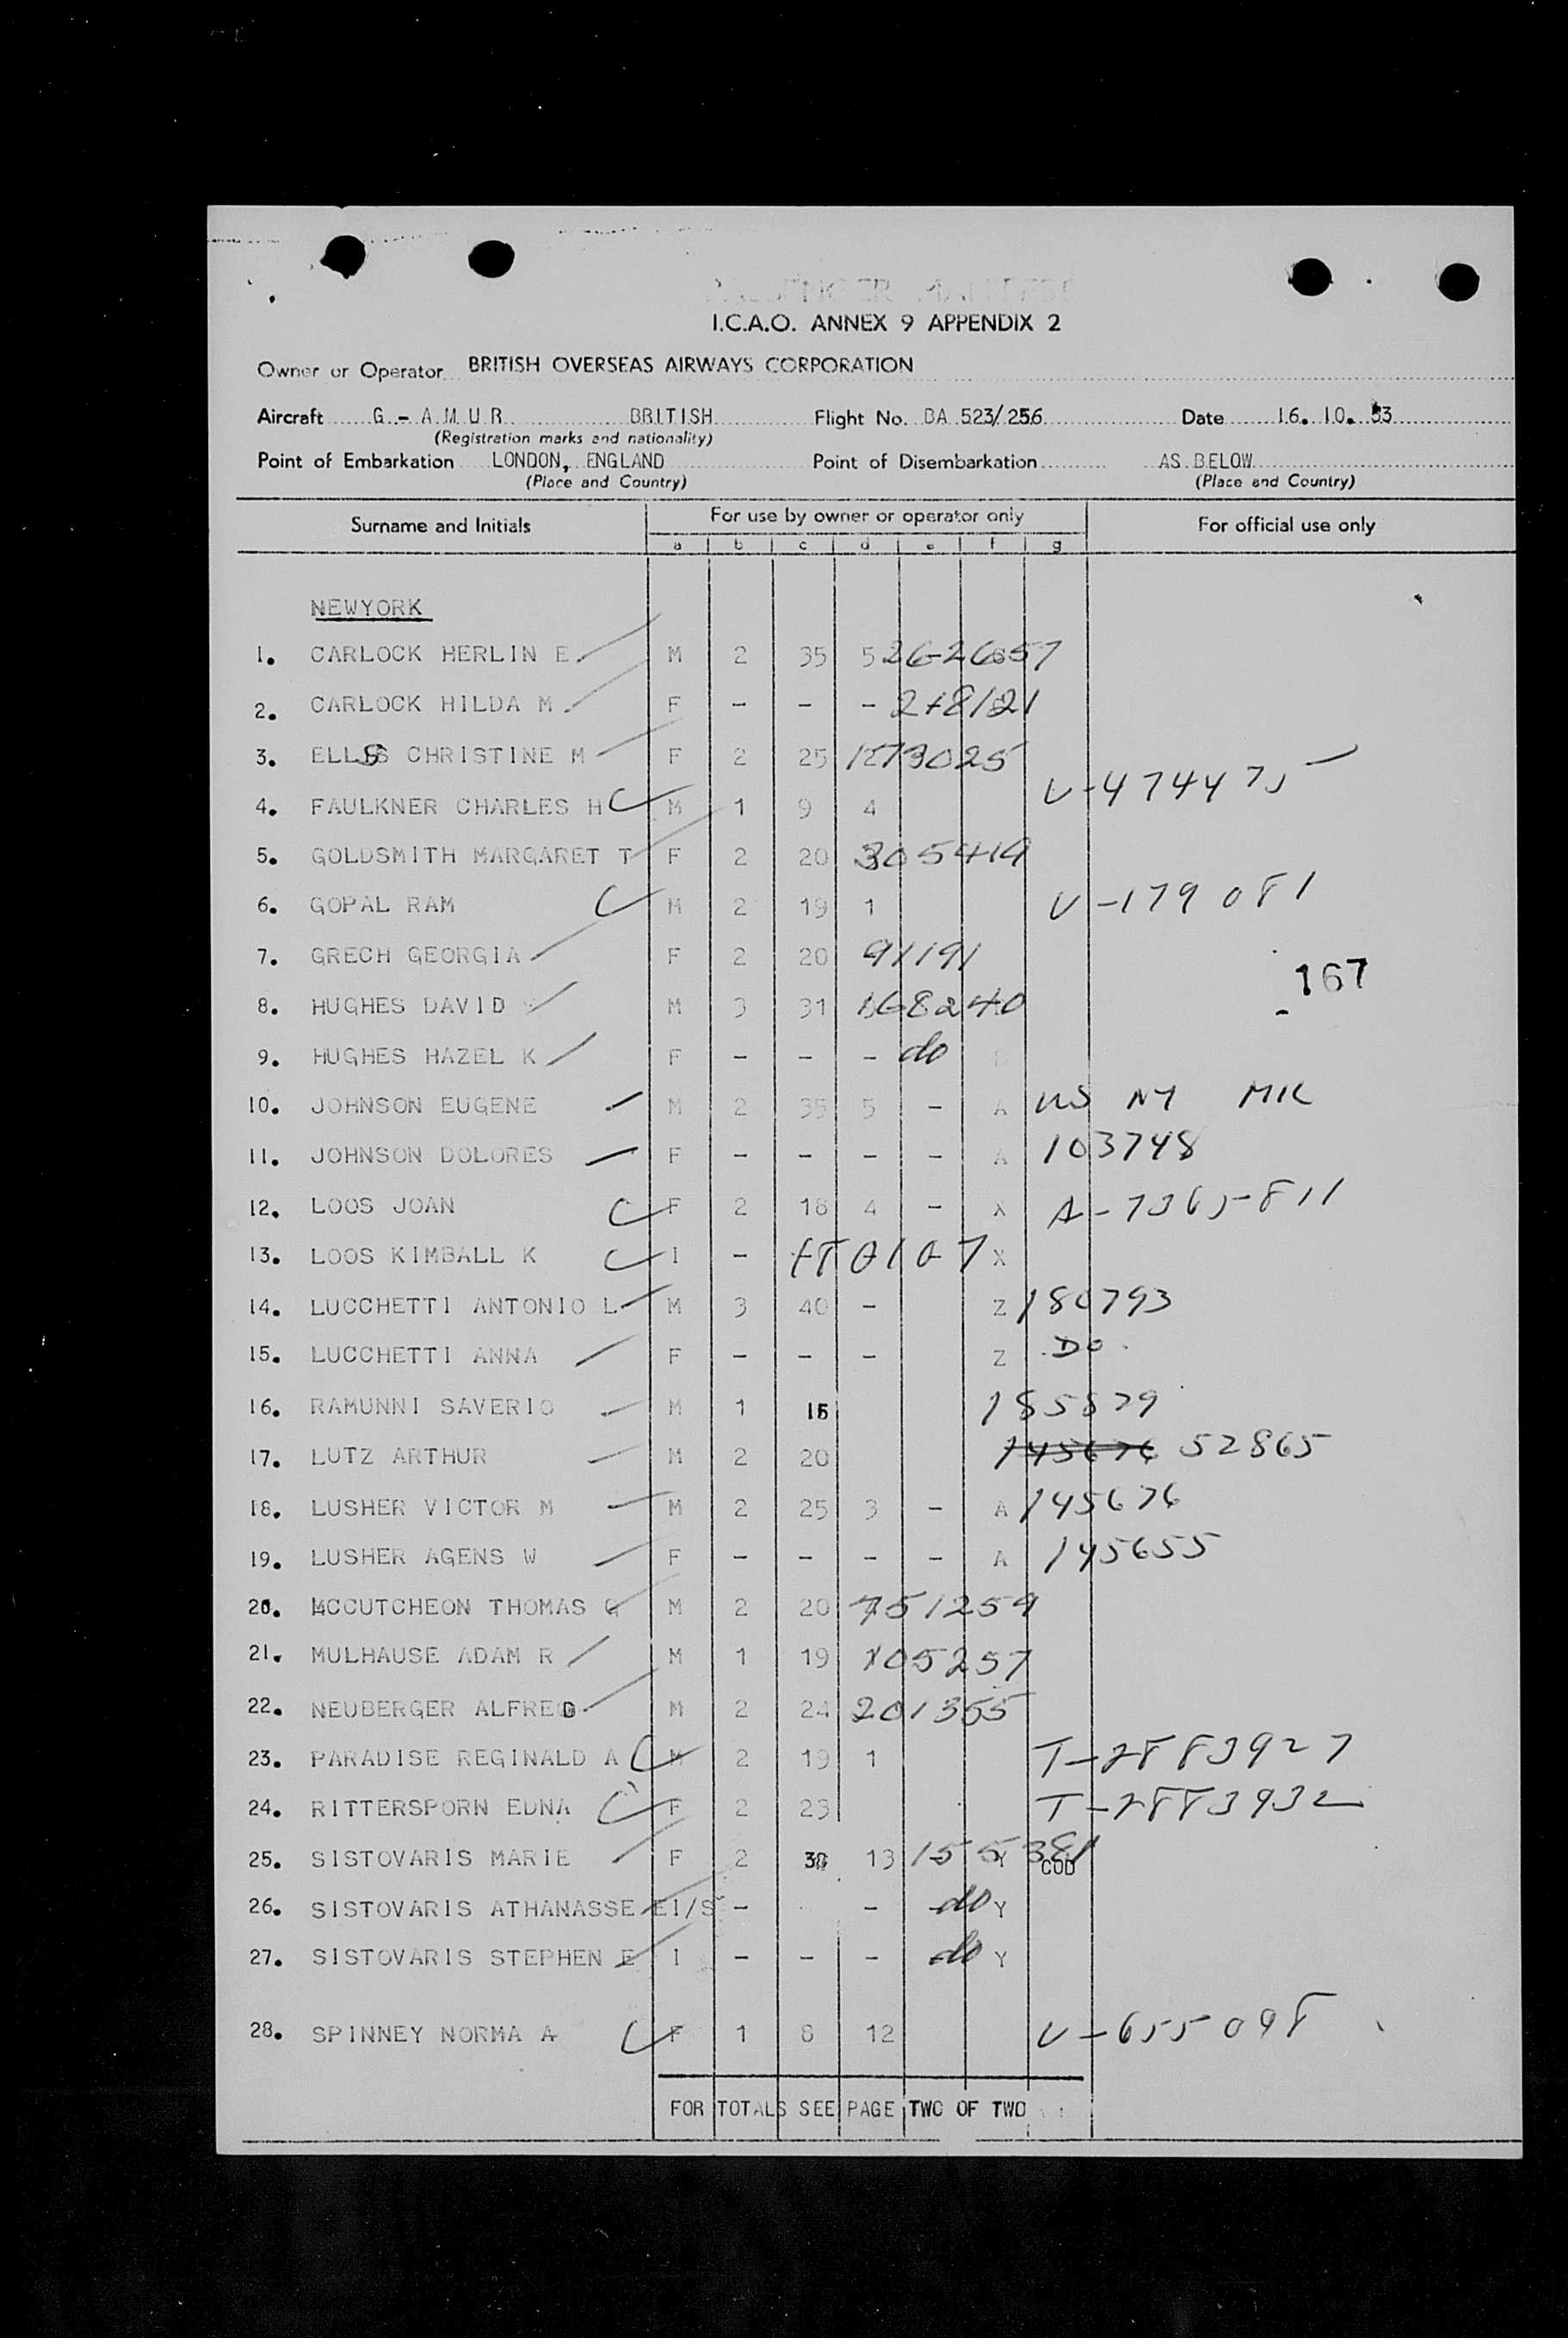 I.C.A.O. ANNEX 9 APPENDIX 2
Owner or Operator BRITISH OVERSEAS AIRWAYS CORPORATION
Aircraft G - A M U R BRITISH Flight No. BA 523/256 Date 16. 10. 53
(Registration marks and nationality)
Point of Embarkation LONDON, ENGLAND Point of Disembarkation AS BELOW
(Place and Country) (Place and Country)
Surname and Initials For use by owner or operator only For official use only
a b c d e f g
NEWYORK
1. CARLOCK HERLIN E M 2 35 5
2. CARLOCK HILDA M F - - -
3. CHRISTINE M F 2 25 1273025
4. FAULKNER CHARLES H C M 1 9 4 V-474475
5. GOLDSMITH MARGARET T F 2 20 305419
6. GOPAL RAM C M 2 19 1 V-179081
7. GRECH GEORGIA F 2 20 91191
167
8. HUGHES DAVID M 3 31 168240
9. HUGHES HAZEL K F - - - do
10. JOHNSON EUGENE M 2 35 5 - A US NY MIL
11. JOHNSON DOLORES F - - - - A 103748
12. LOOS JOAN C F 2 18 4 - X A-7365-811
13. LOOS KIMBALL K C I - X
14. LUCCHETTI ANTONIO L M 3 40 - Z 180793
15. LUCCHETTI ANNA F - - - Z DO
16. RAMUNNI SAVERIO M 1 185879
17. LUTZ ARTHUR M 2 20 145676 52865
18. LUSHER VICTOR M M 2 25 3 - A 145676
19. LUSHER AGENS W F - - - - A 145655
20. MCCUTCHEON THOMAS G M 2 20 751259
21. MULHAUSE ADAM R M 1 19 105257
22. NEUBERGER ALFRED M 2 24 201355
23. PARADISE REGINALD A C M 2 19 1 T-2883927
24. RITTERSPORN EDNA C F 2 23 T-2883932
25. SISTOVARIS MARIE F 2 13 155381 Y COD
26. SISTOVARIS ATHANASSE E I/S - - do Y
27. SISTOVARIS STEPHEN E I - - - do Y
28. SPINNEY NORMA A C F 1 8 12 V-655098
FOR TOTALS SEE PAGE TWO OF TWO